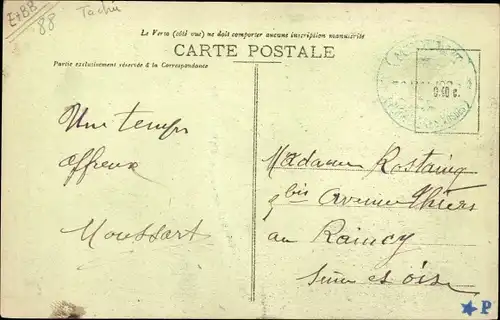 E788
88
Le Verso (côté vue) ne doit comporter aucune inscription manuscrite
CARTE POSTALE
Partie exclusivement réservée à la Correspondance
0.40 c.
Un temps
affreux
Moussart
Madame Rostaing
9 bis Avenue Thiers
au Raincy
Seine et Oise
P